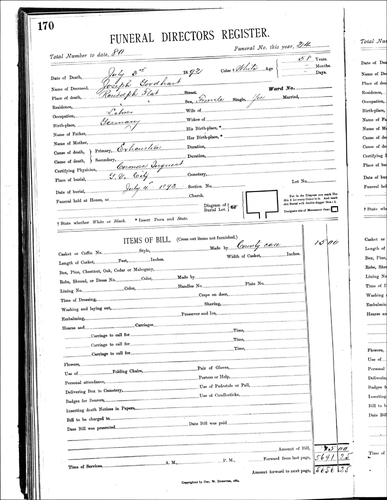 170
FUNERAL DIRECTORS REGISTER.
Total Number to date, 80 Funeral No. this year, 24
Date of Death, July 2nd 1892 Color White Age 58 Years
Months
Days
Name of Deceased, Joseph Goodhart
Place of death, Randolph Flat Street. Ward No.
Residence, " " Sex, Single, Yes Married,
Occupation, Wife of
Birth-place, Germany Widow of
Name of Father, His Birth-place,*
Name of Mother, Her Birth-place,*
Cause of death, Primary, Exhaustion Duration,
Cause of death, Secondary, Duration,
Certifying Physician, Coroners Inquest
Place of burial, City
Date of burial, July 4th 1892 Section No.
Funeral held at Home, or Church.
Diagram of Burial Lot.
† State whether White or Black. * Insert Town and State.
ITEMS OF BILL. (Cross out items not furnished.)
Casket or Coffin No. Style, Made by County case 15 00
Length of Casket, Feet, Inches. Width of Casket, Inches.
Box, Pine, Chestnut, Oak, Cedar or Mahogany,
Robe, Shroud, or Dress No. Color, Made by
Lining No. Color, Handles No. Plate No.
Time of Dressing, Crape on door,
Washing and laying out, Shaving,
Embalming, Preserver and Ice,
Hearse and Carriages.
Carriage to call for Time,
Carriage to call for Time,
Carriage to call for Time,
Carriage to call for Time,
Flowers, Pair of Gloves,
Use of Folding Chairs, Porters or Help,
Personal attendance, Use of Pedestals or Pall,
Delivering Box to Cemetery, Use of Candlesticks,
Badges for Bearers,
Inserting death Notices in Papers,
Bill to be charged to
Date Bill was presented Date Bill was paid
Amount of Bill, 15 00
Forward from last page, 5641 25
Time of Services, A. M., P. M., Amount forward to next page, 5656 25